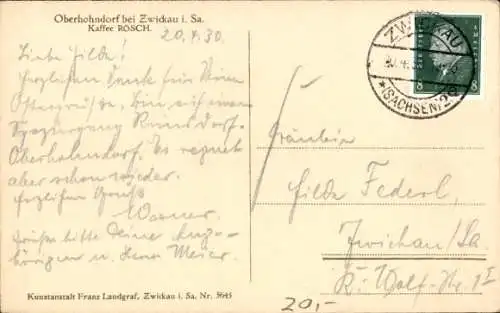 Oberhohndorf bei Zwickau i. Sa.
Kaffee RÖSCH.
20.4.30
Liebe Hilde!
Herzlichen Dank für Deine
Ostergrüße. Bin auf einem
Spaziergang Reinsdorf-
Oberhohndorf. Es regnet
aber schon wieder.
Herzlichen Gruß
Werner.
Grüße bitte Deine Ange-
hörigen u. Herrn Meier.
Kunstanstalt Franz Landgraf, Zwickau i. Sa. Nr. 5645
ZWICKAU
(SACHSEN)
8 8
Fräulein
Hilde Federl,
Zwickau/Sa.
20,-